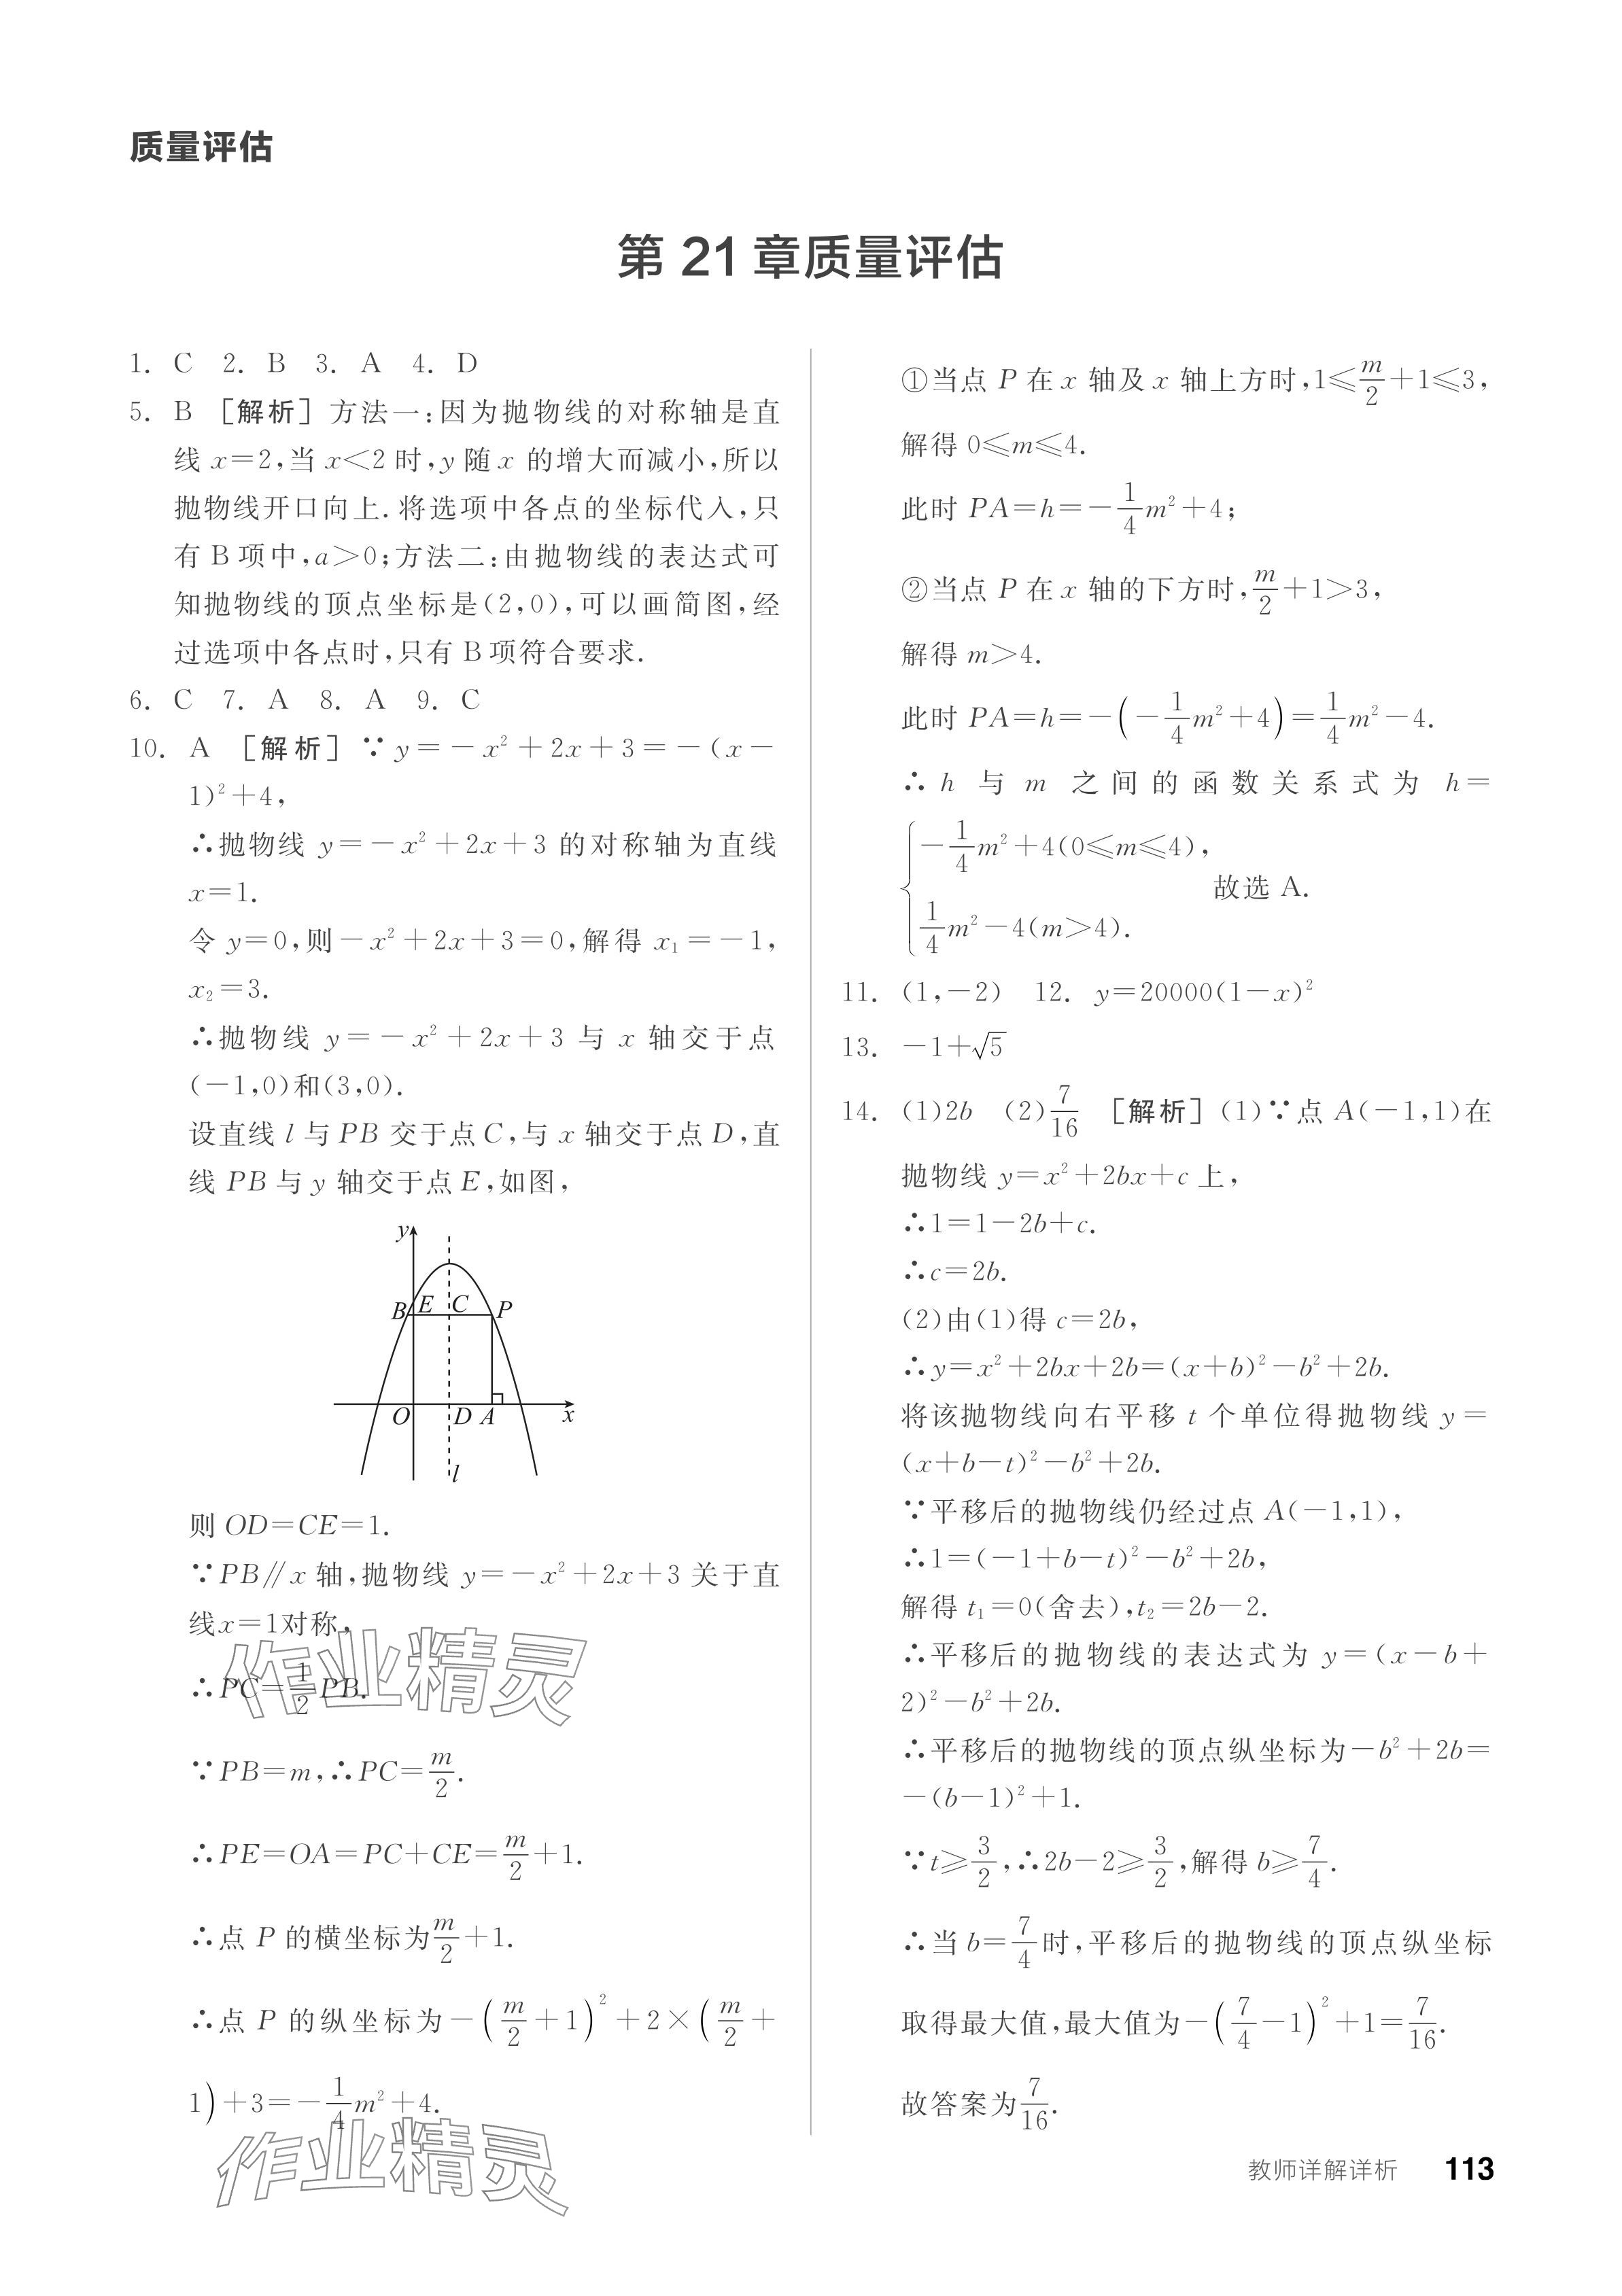 质量评估
第 21 章质量评估
1. C 2. B 3. A 4. D
5. B [解析] 方法一:因为抛物线的对称轴是直
线 x=2,当 x<2 时,y 随 x 的增大而减小,所以
抛物线开口向上. 将选项中各点的坐标代入,只
有 B 项中,a>0;方法二:由抛物线的表达式可
知抛物线的顶点坐标是(2,0),可以画简图,经
过选项中各点时,只有 B 项符合要求.
6. C 7. A 8. A 9. C
10. A [解析] ∵y=-x²+2x+3=-(x-
1)²+4,
∴抛物线 y=-x²+2x+3 的对称轴为直线
x=1.
令 y=0,则-x²+2x+3=0,解得 x₁=-1,
x₂=3.
∴抛物线 y=-x²+2x+3 与 x 轴交于点
(-1,0)和(3,0).
设直线 l 与 PB 交于点 C,与 x 轴交于点 D,直
线 PB 与 y 轴交于点 E,如图,
y
B E C P
O D A x
l
则 OD=CE=1.
∵PB∥x 轴,抛物线 y=-x²+2x+3 关于直
线x=1对称,
∴PC=1/2PB.
∵PB=m,∴PC=m/2.
∴PE=OA=PC+CE=m/2+1.
∴点 P 的横坐标为m/2+1.
∴点 P 的纵坐标为-(m/2+1)²+2×(m/2+
1)+3=-1/4m²+4.
①当点 P 在 x 轴及 x 轴上方时,1≤m/2+1≤3,
解得 0≤m≤4.
此时 PA=h=-1/4m²+4;
②当点 P 在 x 轴的下方时,m/2+1>3,
解得 m>4.
此时 PA=h=-(-1/4m²+4)=1/4m²-4.
∴ h 与 m 之间的函数关系式为 h=
{-1/4m²+4(0≤m≤4),
1/4m²-4(m>4). 故选 A.
11. (1,-2) 12. y=20000(1-x)²
13. -1+√5
14. (1)2b (2)7/16 [解析] (1)∵点 A(-1,1)在
抛物线 y=x²+2bx+c 上,
∴1=1-2b+c.
∴c=2b.
(2)由(1)得 c=2b,
∴y=x²+2bx+2b=(x+b)²-b²+2b.
将该抛物线向右平移 t 个单位得抛物线 y=
(x+b-t)²-b²+2b.
∵平移后的抛物线仍经过点 A(-1,1),
∴1=(-1+b-t)²-b²+2b,
解得 t₁=0(舍去),t₂=2b-2.
∴平移后的抛物线的表达式为 y=(x-b+
2)²-b²+2b.
∴平移后的抛物线的顶点纵坐标为-b²+2b=
-(b-1)²+1.
∵t≥3/2,∴2b-2≥3/2,解得 b≥7/4.
∴当 b=7/4时,平移后的抛物线的顶点纵坐标
取得最大值,最大值为-(7/4-1)²+1=7/16.
故答案为7/16.
作业精灵
作业精灵
教师详解详析 113